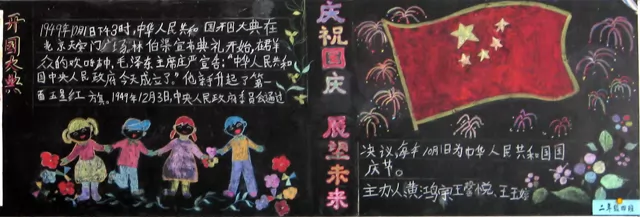 开国大典
1949年10月1日下午3时,中华人民共和国开国大典在
北京天安门广场,林伯渠宣布典礼开始,在群
众的欢呼声中,毛泽东主席庄严宣告:“中华人民共和
国中央人民政府今天成立了。”他亲手升起了第一
面五星红旗。1949年12月3日,中央人民政府委员会通过
庆祝国庆 展望未来
决议每年10月1日为中华人民共和国国
庆节。
主办人黄鸿宇王馨悦、王玉
二年级四班